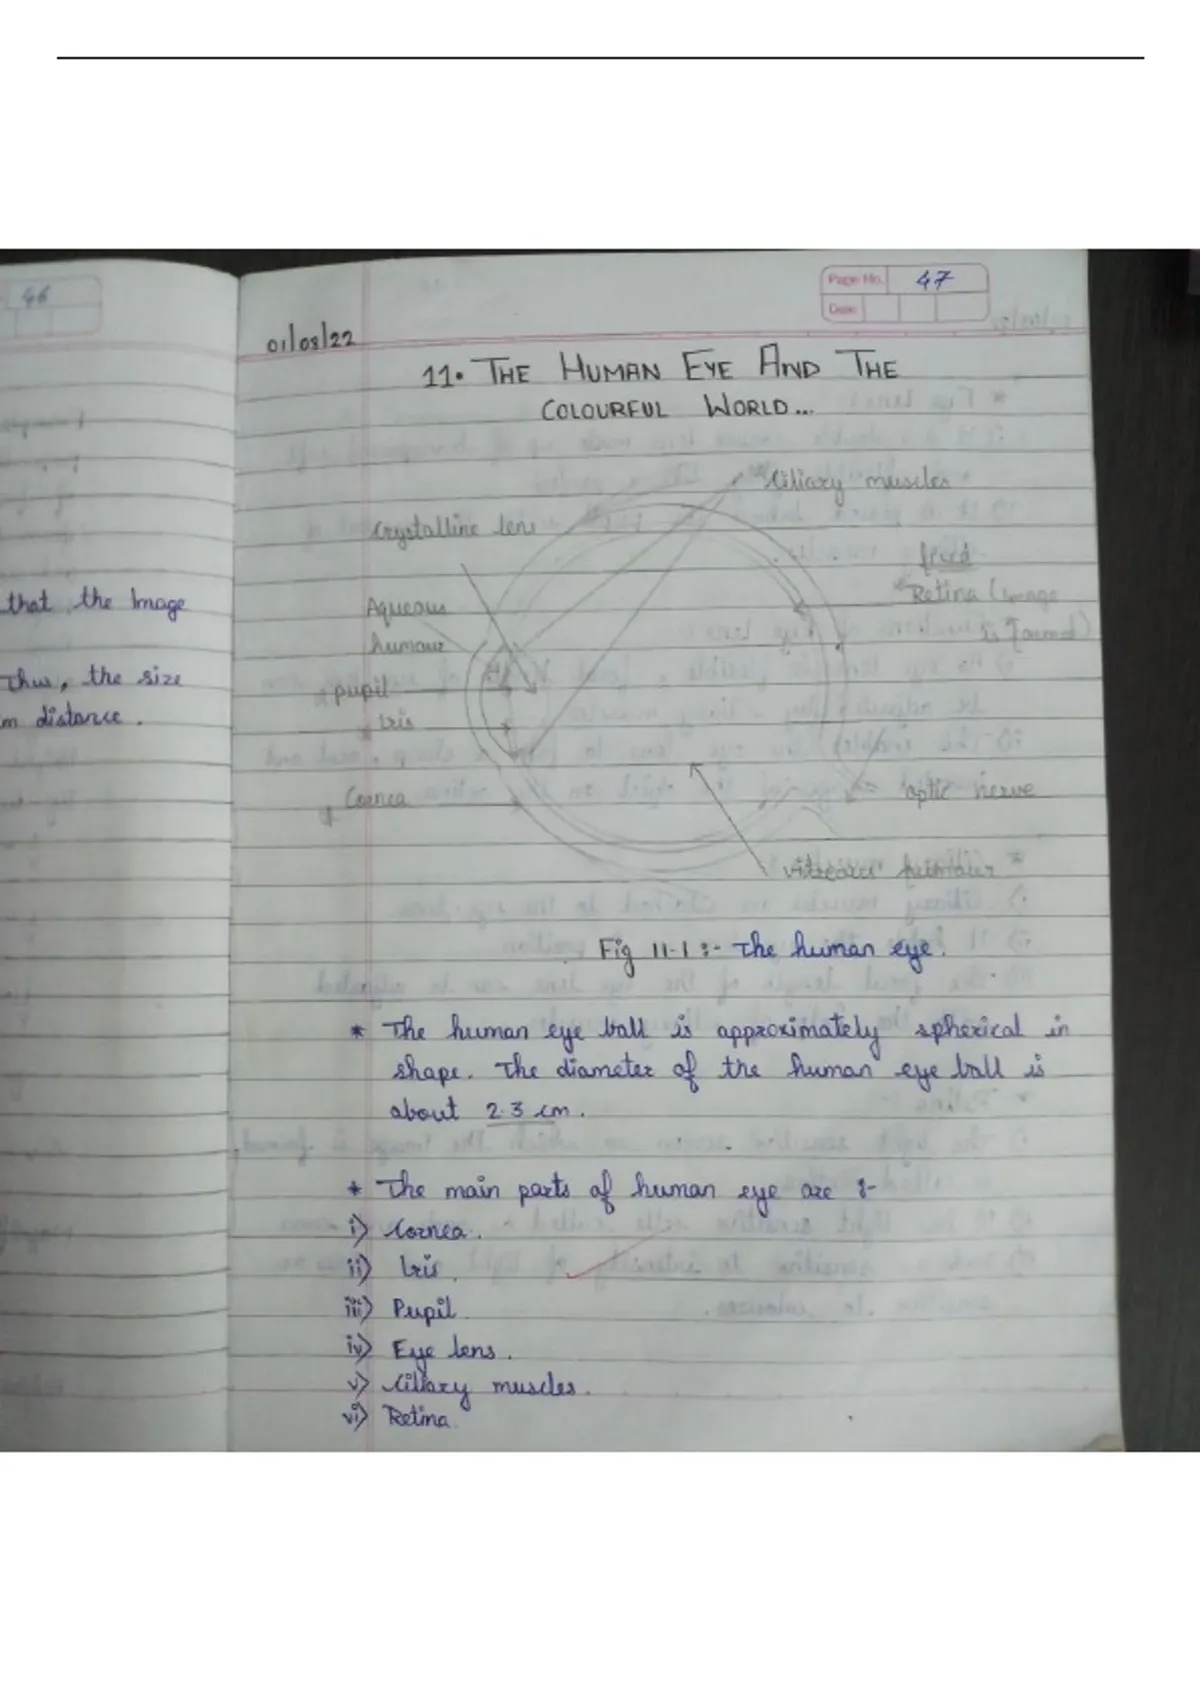 46
that the Image
Thus, the size
m distance.
Page No. 47
Date
01/08/22
11. THE HUMAN EYE AND THE
COLOURFUL WORLD...
Ciliary muscles
Crystalline lens
Retina (image
formed)
Aqueous
humour
pupil
Iris
Cornea
optic nerve
vitreous humour
Fig 11.1 :- The human eye.
* The human eye ball is approximately spherical in
shape. The diameter of the human eye ball is
about 2.3 cm.
* The main parts of human eye are :-
i) Cornea.
ii) Iris.
iii) Pupil.
iv) Eye lens.
v) Ciliary muscles.
vi) Retina.